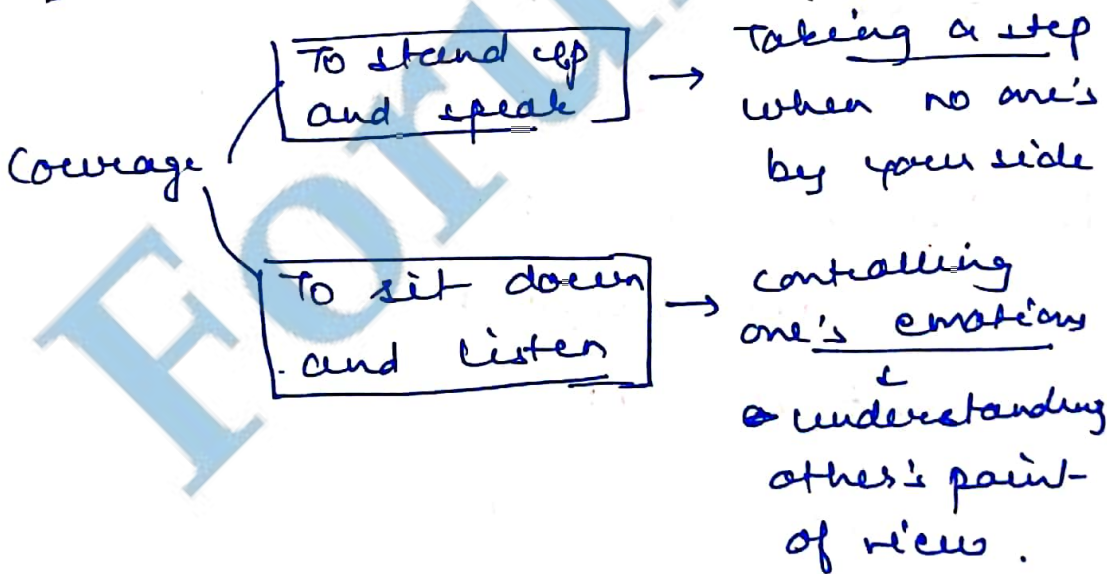 To stand up
and speak
→ Taking a step
when no one's
by your side
Courage
To sit down
and listen
→ controlling
one's emotions
↓
understanding
other's point
of view.
Foru